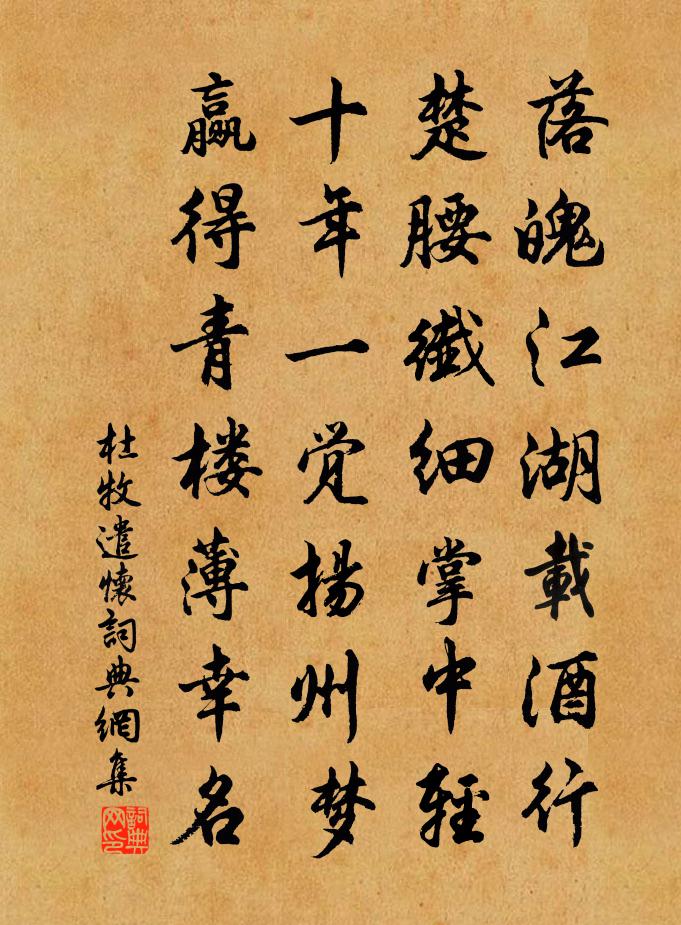 落魄江湖載酒行
楚腰纖細掌中輕
十年一觉揚州梦
赢得青楼薄幸名
杜牧遣懷詞典網集
詞典网印